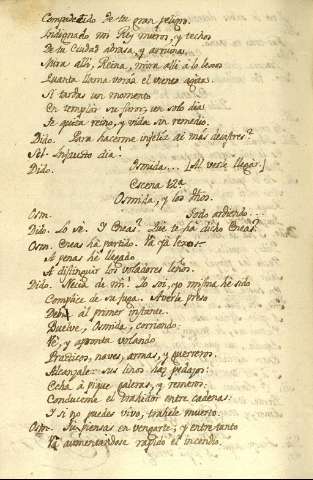 Compadecido De tu gran peligro.
Indignado mi Rey muros, y techos
De tu Ciudad abrasa, y arruina.
Mira alli, Reina, mira alli a lo lexos
Quanta llama voráz el viento agita.
Si tardas un momento
En templar su furor, un solo dia
Te quita reino, y vida sin remedio.
Dido. Para hacerme infeliz ai más desastres?
Sel. Infausto dia!
Dido. Osmida... [Al verle llegar.]
Escena 12ª
Osmida, y los dhos.
Osm. Todo ardiendo...
Dido. Lo sé. I Eneas? Què te ha dicho Eneas?
Osm. Eneas ha partido. Ya ya lexos
A penas he llegado
A distinguir los voladores leños.
Dido. Necia de mi! Io soi, yo misma he sido
Complice de su fuga. Averle preso
Debi al primer instante.
Buelve, Osmida, corriendo:
Ve, y apronta volando
Practicos, naves, armas, y guerreros.
Alcanzale: sus linos haz pedazos:
Echa á pique galeras, y remeros:
Conduceme el trahidor entre cadenas:
I si no puedes vivo, trahele muerto.
Osm. Tu piensas en vengarte; y entre tanto
Va aumentandose rapido el incendio.